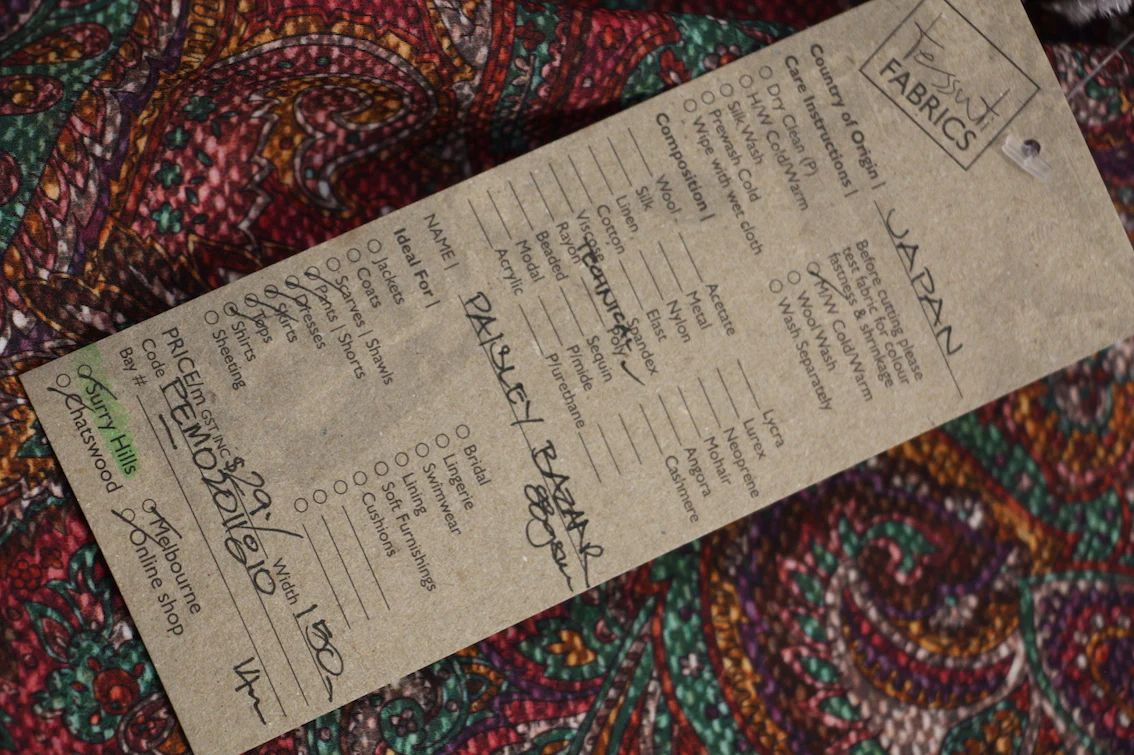 Tessuti
FABRICS
Country of Origin | JAPAN
Care Instructions |
Before cutting please
test fabric for colour
fastness & shrinkage
Dry Clean (P)
H/W Cold/Warm
Silk Wash
Prewash Cold
Wipe with wet cloth
M/W Cold/Warm
Wool Wash
Wash Separately
Composition |
Wool
Silk
Linen
Cotton
Viscose
Rayon
Beaded
Modal
Acrylic
Acetate
Metal
Nylon
Elast
Spandex
TECHNICAL Poly ✓
Sequin
P/mide
P/urethane
Lycra
Lurex
Neoprene
Mohair
Angora
Cashmere
NAME | PAISLEY BAZAAR
Ideal For |
Jackets
Coats
Scarves | Shawls
Pants | Shorts
Dresses
Skirts
Tops
Shirts
Sheeting
Bridal
Lingerie
Swimwear
Lining
Soft Furnishings
Cushions
PRICE/m GST INC $29./ Width 150
Code
Bay #
Surry Hills
Chatswood
Melbourne
Online shop